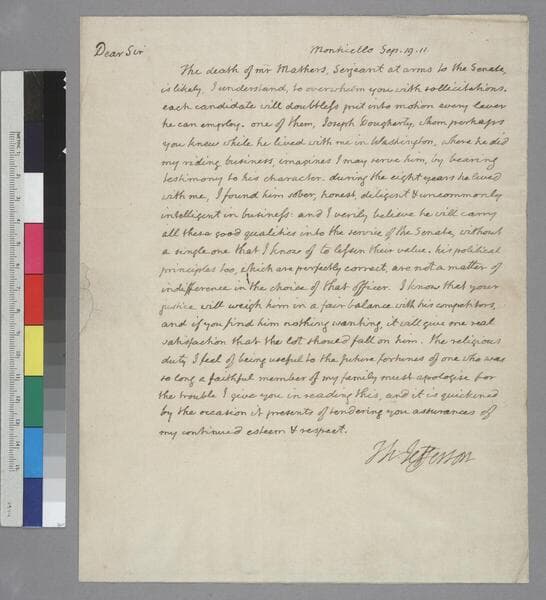 Dear Sir
Monticello Sep. 19. 11.
The death of mr Mathers, Serjeant at arms to the Senate,
is likely, I understand, to overwhelm you with sollicitations.
each candidate will doubtless put into motion every lever
he can employ. one of them, Joseph Dougherty, whom perhaps
you knew while he lived with me in Washington, where he did
my riding business, imagines I may serve him, by bearing
testimony to his character. during the eight years he lived
with me, I found him sober, honest, diligent & uncommonly
intelligent in business. and I verily believe he will carry
all these good qualities into the service of the Senate, without
a single one that I know of to lessen their value. his political
principles too, which are perfectly correct, are not a matter of
indifference in the choice of that officer. I know that your
justice will weigh him in a fair balance with his competitors,
and if you find him nothing wanting, it will give me real
satisfaction that the lot should fall on him. the religious
duty I feel of being useful to the future fortunes of one who was
so long a faithful member of my family must apologise for
the trouble I give you in reading this, and it is quickened
by the occasion it presents of tendering you assurances of
my continued esteem & respect.
Th: Jefferson